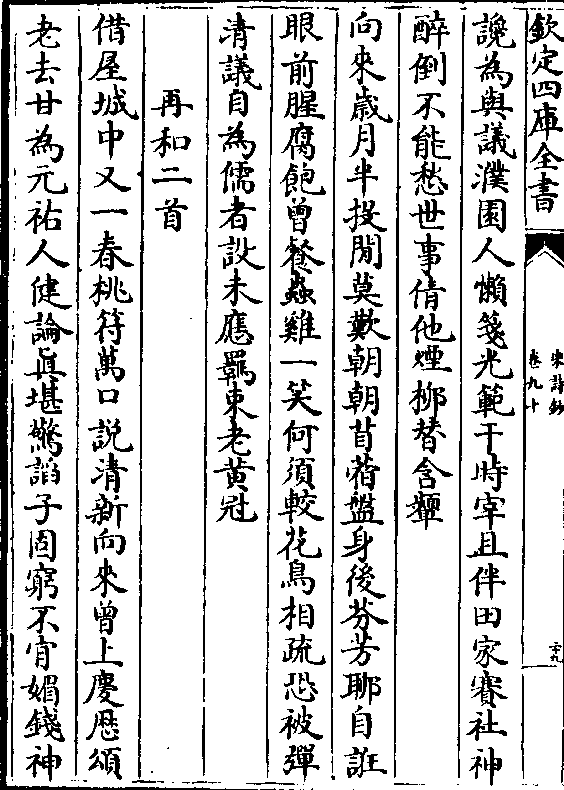 欽定四庫全書
宋詩鈔
卷九十
二十九
讒為與議濮園人懶箋光範干時宰且伴田家賽社神
醉倒不能愁世事倩他煙柳替含顰
向來歲月半投閒莫歎朝朝苜蓿盤身後芬芳聊自誑
眼前腥腐飽曾餐蟲雞一笑何須較花鳥相疏恐被彈
清議自為儒者設未應羈束老黃冠
再和二首
借屋城中又一春桃符萬口說清新向來曾上慶厯頌
老去甘為元祐人健論真堪驚謟子固窮不肯媚錢神